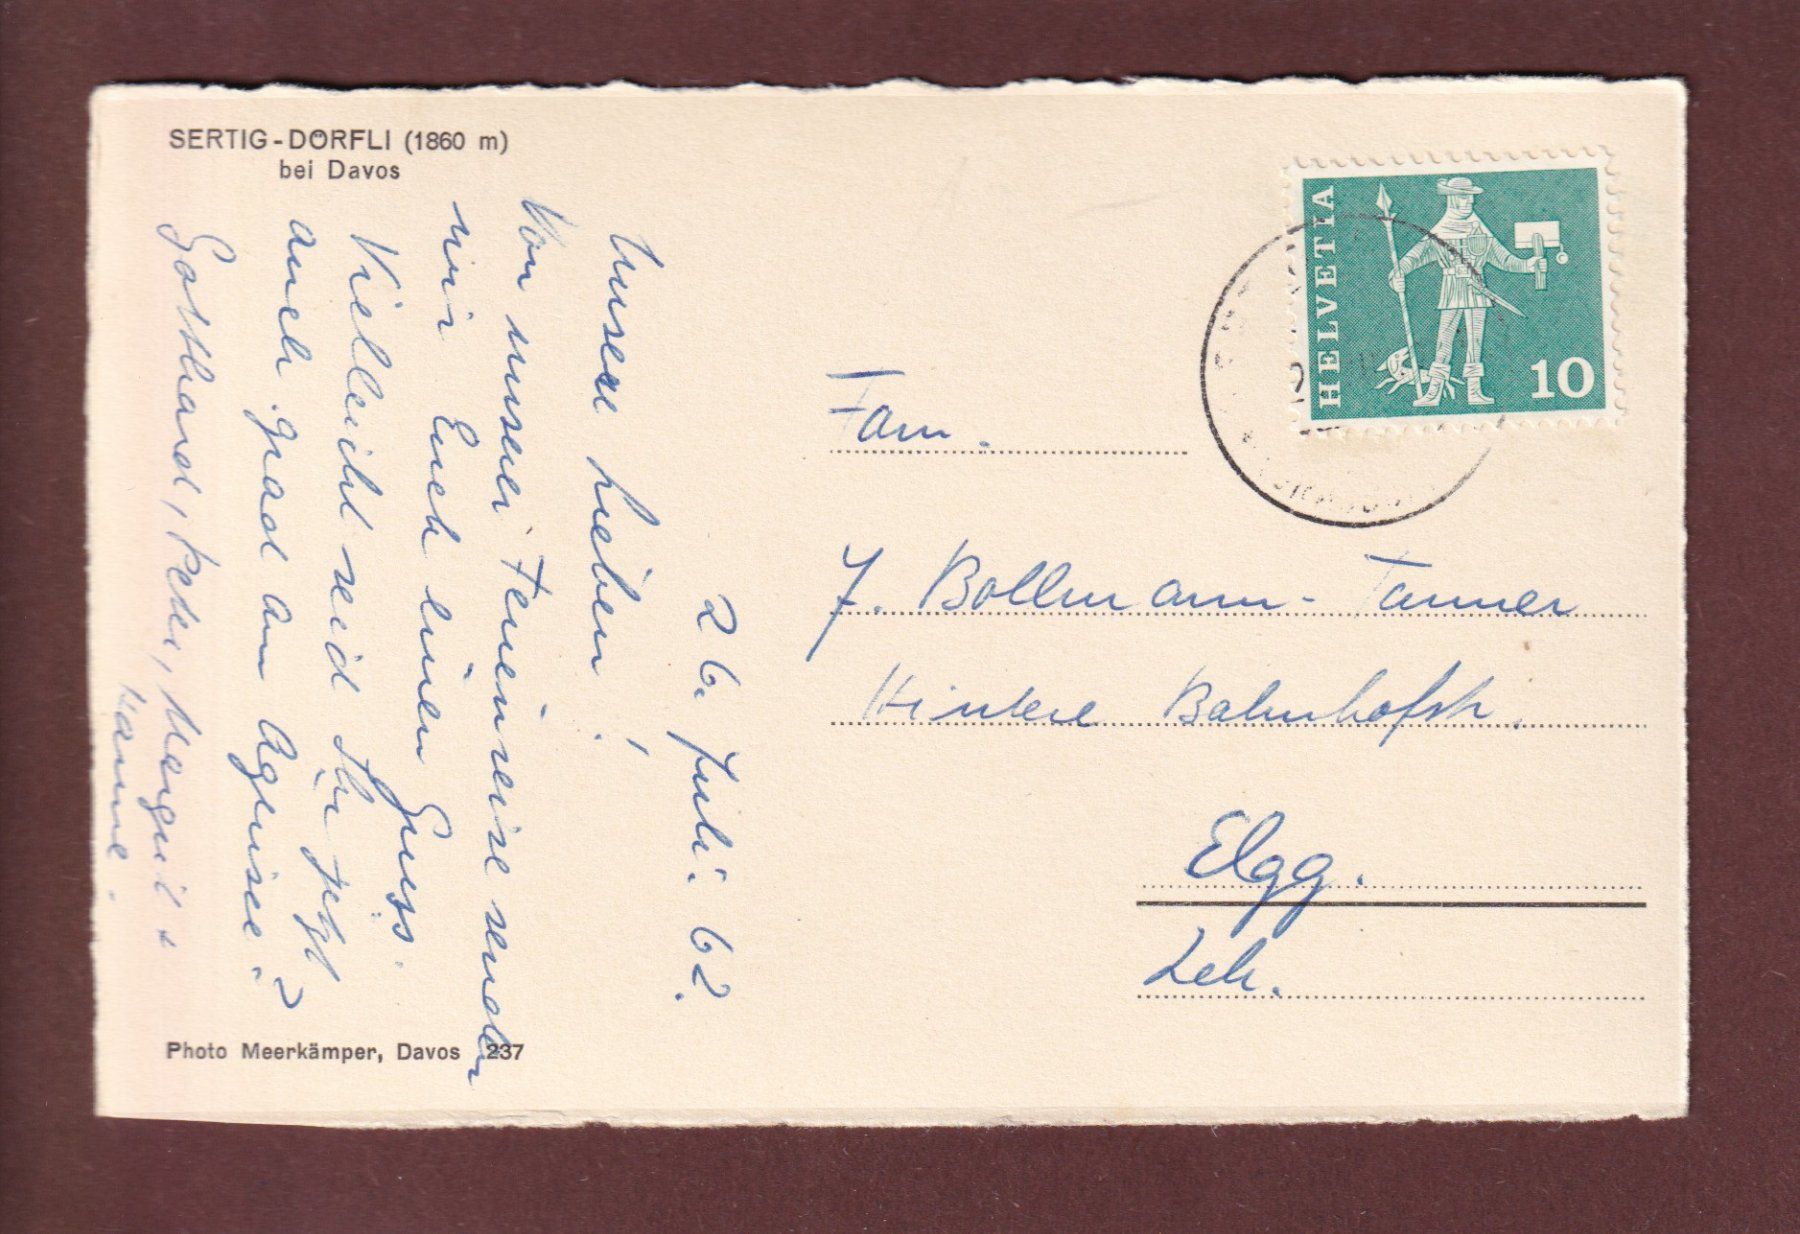 SERTIG-DÖRFLI (1860 m)
bei Davos
26. Juli 62.
Unsere Lieben!
Von unserer Ferienreise senden
wir Euch einen Gruss.
Vielleicht seid Ihr jetzt
auch grad am Agerisee?
Gotthard, Peter, Margrit +
Hanne.
Photo Meerkämper, Davos 237
HELVETIA
10
Fam.
J. Bollmann-Tanner
Hintere Bahnhofstr.
Elgg.
Zch.